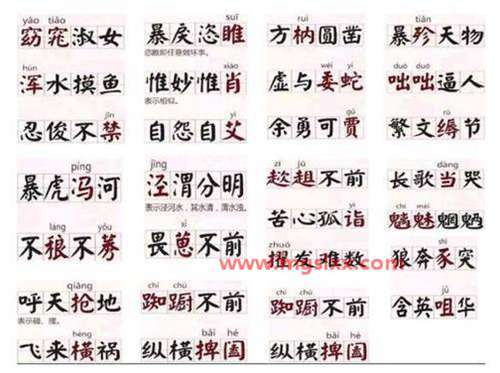 yǎo tiǎo suī ruì tiǎn
窈窕淑女 暴戾恣睢 方枘圆凿 暴殄天物
恣睢即任意做坏事。
hún xiào wēi yí duō duō
浑水摸鱼 惟妙惟肖 虚与委蛇 咄咄逼人
表示相似。
jīn yì gǔ rù
忍俊不禁 自怨自艾 余勇可贾 繁文缛节
píng jīng zī jū dàng
暴虎冯河 泾渭分明 趑趄不前 长歌当哭
表示泾河水,其水清,渭水浊。
láng yǒu xǐ yì chī mèi
不稂不莠 畏葸不前 苦心孤诣 魑魅魍魉
zhuó shǐ
擢发难数 狼奔豕突
qiāng chí chú chí chú jǔ
呼天抢地 踟蹰不前 踟蹰不前 含英咀华
表示碰、撞。
hèng bǎi hé bǎi hé
飞来横祸 纵横捭阖 纵横捭阖